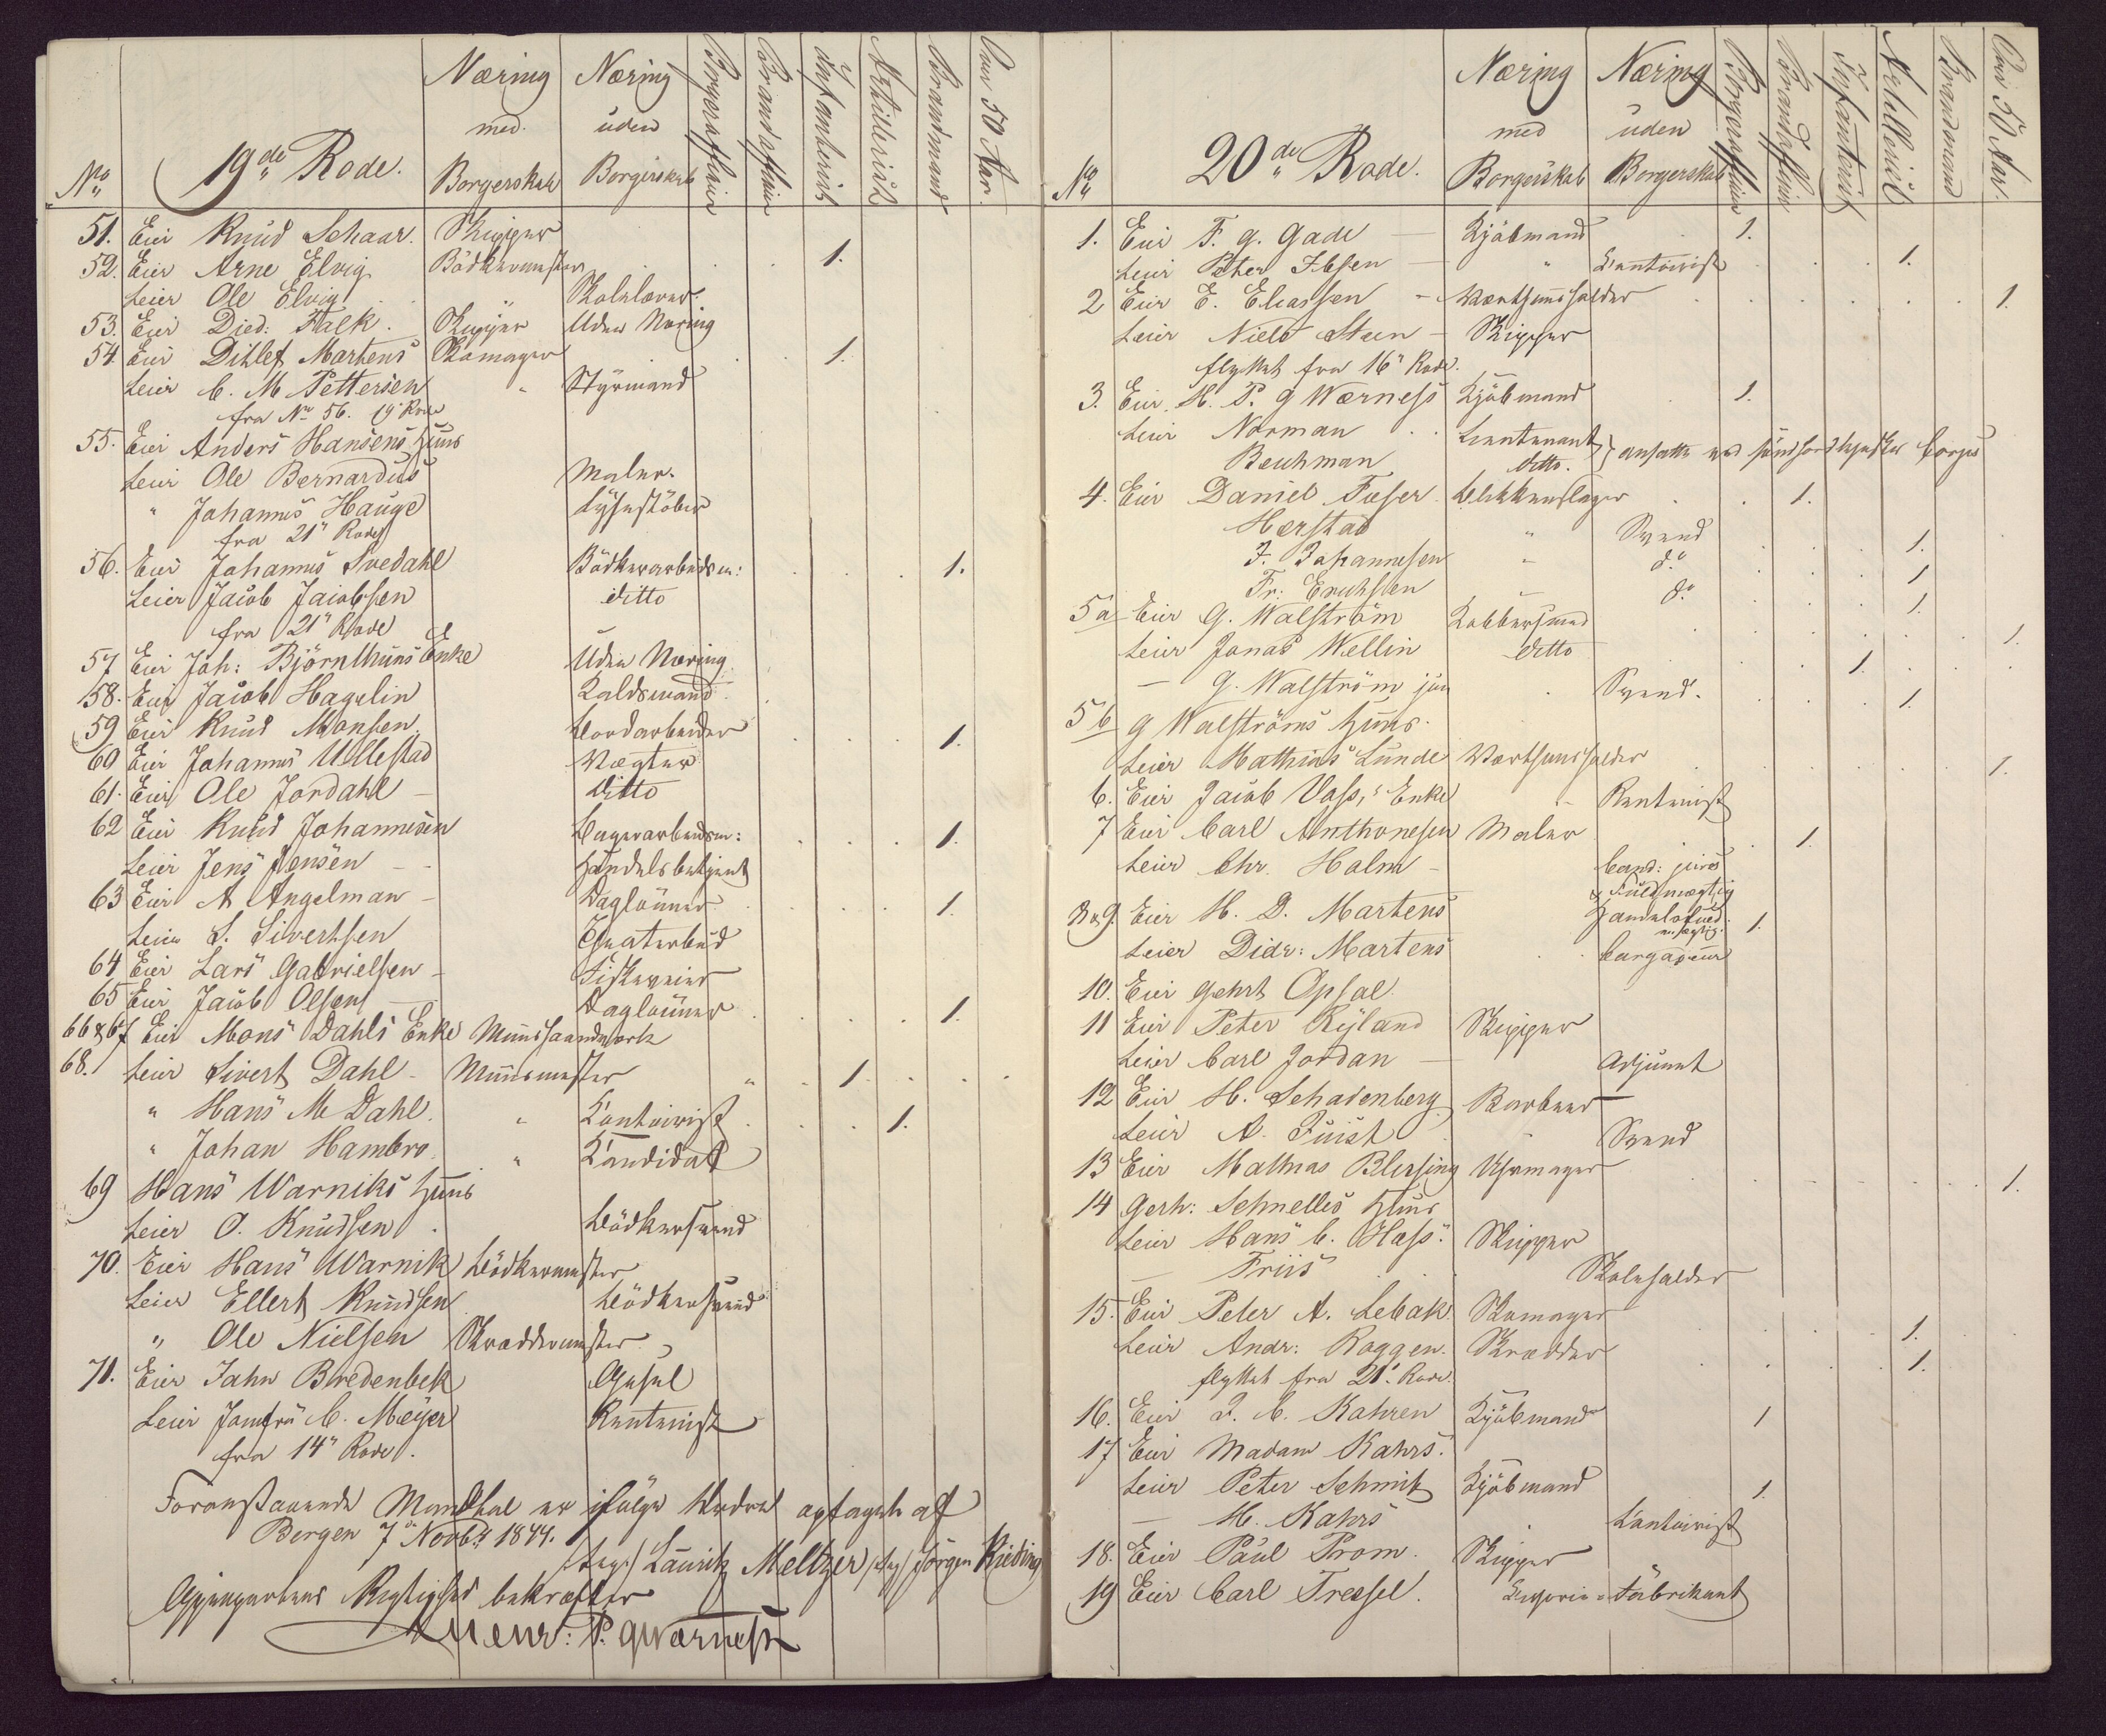 No 19de Rode. Næring med Borgerskab Næring uden Borgerskab Borgeroffisier Brandoffisier Infanterist Artillerist Brandmand Over 50 Aar.
51. Eier Knud Schaar. Skipper
52. Eier Arne Elvig Bödkermester 1.
Leier Ole Elvig Skolelærer
53. Eier Died: Falk. Skipper Uden Næring
54. Eier Ditlef Martens Skomager 1.
Leier C. M Pettersen " Styrmand
fra No 56. 19" Rode
55. Eier Anders Hansens Huus
Leier Ole Bernardus Maler.
" Johannes Hauge Lysestöber
fra 21" Rode
56. Eier Johannes Svedahl Bödkerarbeidsm: 1.
Leier Jacob Jacobsen ditto
fra 21" Rode
57 Eier Joh: Björnthuns Enke Uden Næring
58. Eier Jacob Hagelin
59 Eier Knud Monsen 1.
60 Eier Johannes Ullestad Vægter
61. Eier Ole Jordahl ditto
62 Eier Knud Johannesen Bagerarbeidsm: 1.
Leier Jens Jensen Handelsbetjent
63 Eier A Angelman Daglönner 1.
Leier S. Sivertsen Theaterbud
64 Eier Lars Gabrielsen
65 Eier Jacob Olsen Daglönner 1.
66 & 67 Eier Mons Dahls Enke Muurhaandverk
68. Leier Sivert Dahl Muurmester " 1
" Hans M Dahl. " Contoirist 1.
" Johan Hambro. " Kandidat
69 Hans Warniks Huus
Leier O. Knudsen Bödkersvend
70. Eier Hans Warnik Bödkermester
Leier Ellert Knudsen Bödkersvend
" Ole Nielsen Skreddermester
71. Eier Jahn Bredenbek
Leier Jomfru C. Meyer Rentenist
fra 14" Rode.
Foranstaaende Mandtal er ifölge Ordre optaget af
Bergen 7de Novbr 1844.
/teg:/ Lauritz Meltzer /teg/ Jörgen Rieding
Rigtighed bekræfter
P. G Værness
No 20de Rode. Næring med Borgerskab Næring uden Borgerskab Borgeroffisier Brandoffisier Infanterist Artillerist Brandmand Over 50 Aar.
1. Eier F. G. Gade Kjöbmand 1.
Leier Peter Ibsen " Contoirist 1.
2 Eier E. Eliassen Værtshuusholder 1.
Leier Niels Steen Skipper
flyttet fra 16" Rode.
3. Eier H. P. G Wærness Kjöbmand 1.
Leier Norman Lieutenant } ansatte ved corps
Beichman ditto.
4. Eier Daniel Blikkenslager 1.
Herstad " Svend 1.
J. Johannesen " do 1
Fr: Erichsen do 1.
5a Eier G. Walström Kobbersmed 1.
Leier Jonas Wellin ditto 1
— G. Walström jun Svend. 1.
5b G Walströms Huus.
Leier Mathias Lunde Værtshuusholder 1.
6. Eier Jacob Voss's Enke Rentenist
7 Eier Carl Anthonesen Maler 1.
Leier Chr. Holm Cand: juris
& Fuldmægtig
8 & 9. Eier H. D. Martens Handelsfuld-
mægtig. 1.
Leier Didr: Martens Cargadeur
10. Eier Gehrt Opsal
11 Eier Peter Ryland Skipper
Leier Carl Jordan Adjunct
12 Eier H. Schadenberg Barbeer
Leier A. Svend
13 Eier Mathias Blessing Uhrmager 1.
14 Gerh: Schnelles Huus
Leier Hans C. Hass. Skipper
— Friis Skoleholder
15. Eier Peter A. Lebak. Skomager 1.
Leier Andr: Roggen. Skredder 1.
flyttet fra 21" Rode.
16. Eier J. C. Kahren Kjöbmand 1
17 Eier Madam Kahrs.
Leier Peter Schmit Kjöbmand 1.
— H. Kahrs Contoirist
18. Eier Paul Prom. Skipper
19 Eier Carl Fabrikant